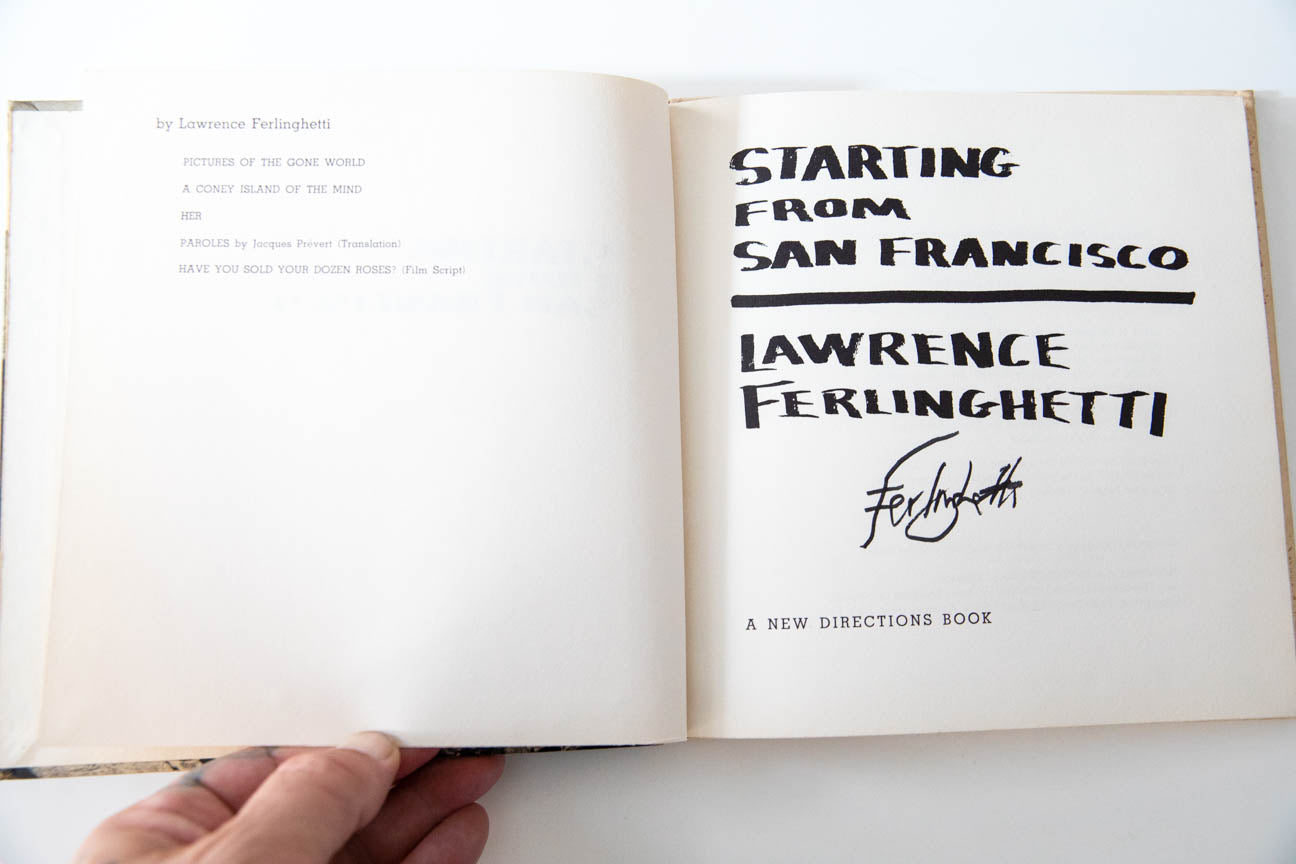 by Lawrence Ferlinghetti
PICTURES OF THE GONE WORLD
A CONEY ISLAND OF THE MIND
HER
PAROLES by Jacques Prévert (Translation)
HAVE YOU SOLD YOUR DOZEN ROSES? (Film Script)
STARTING
FROM
SAN FRANCISCO
LAWRENCE
FERLINGHETTI
Ferlinghetti
A NEW DIRECTIONS BOOK